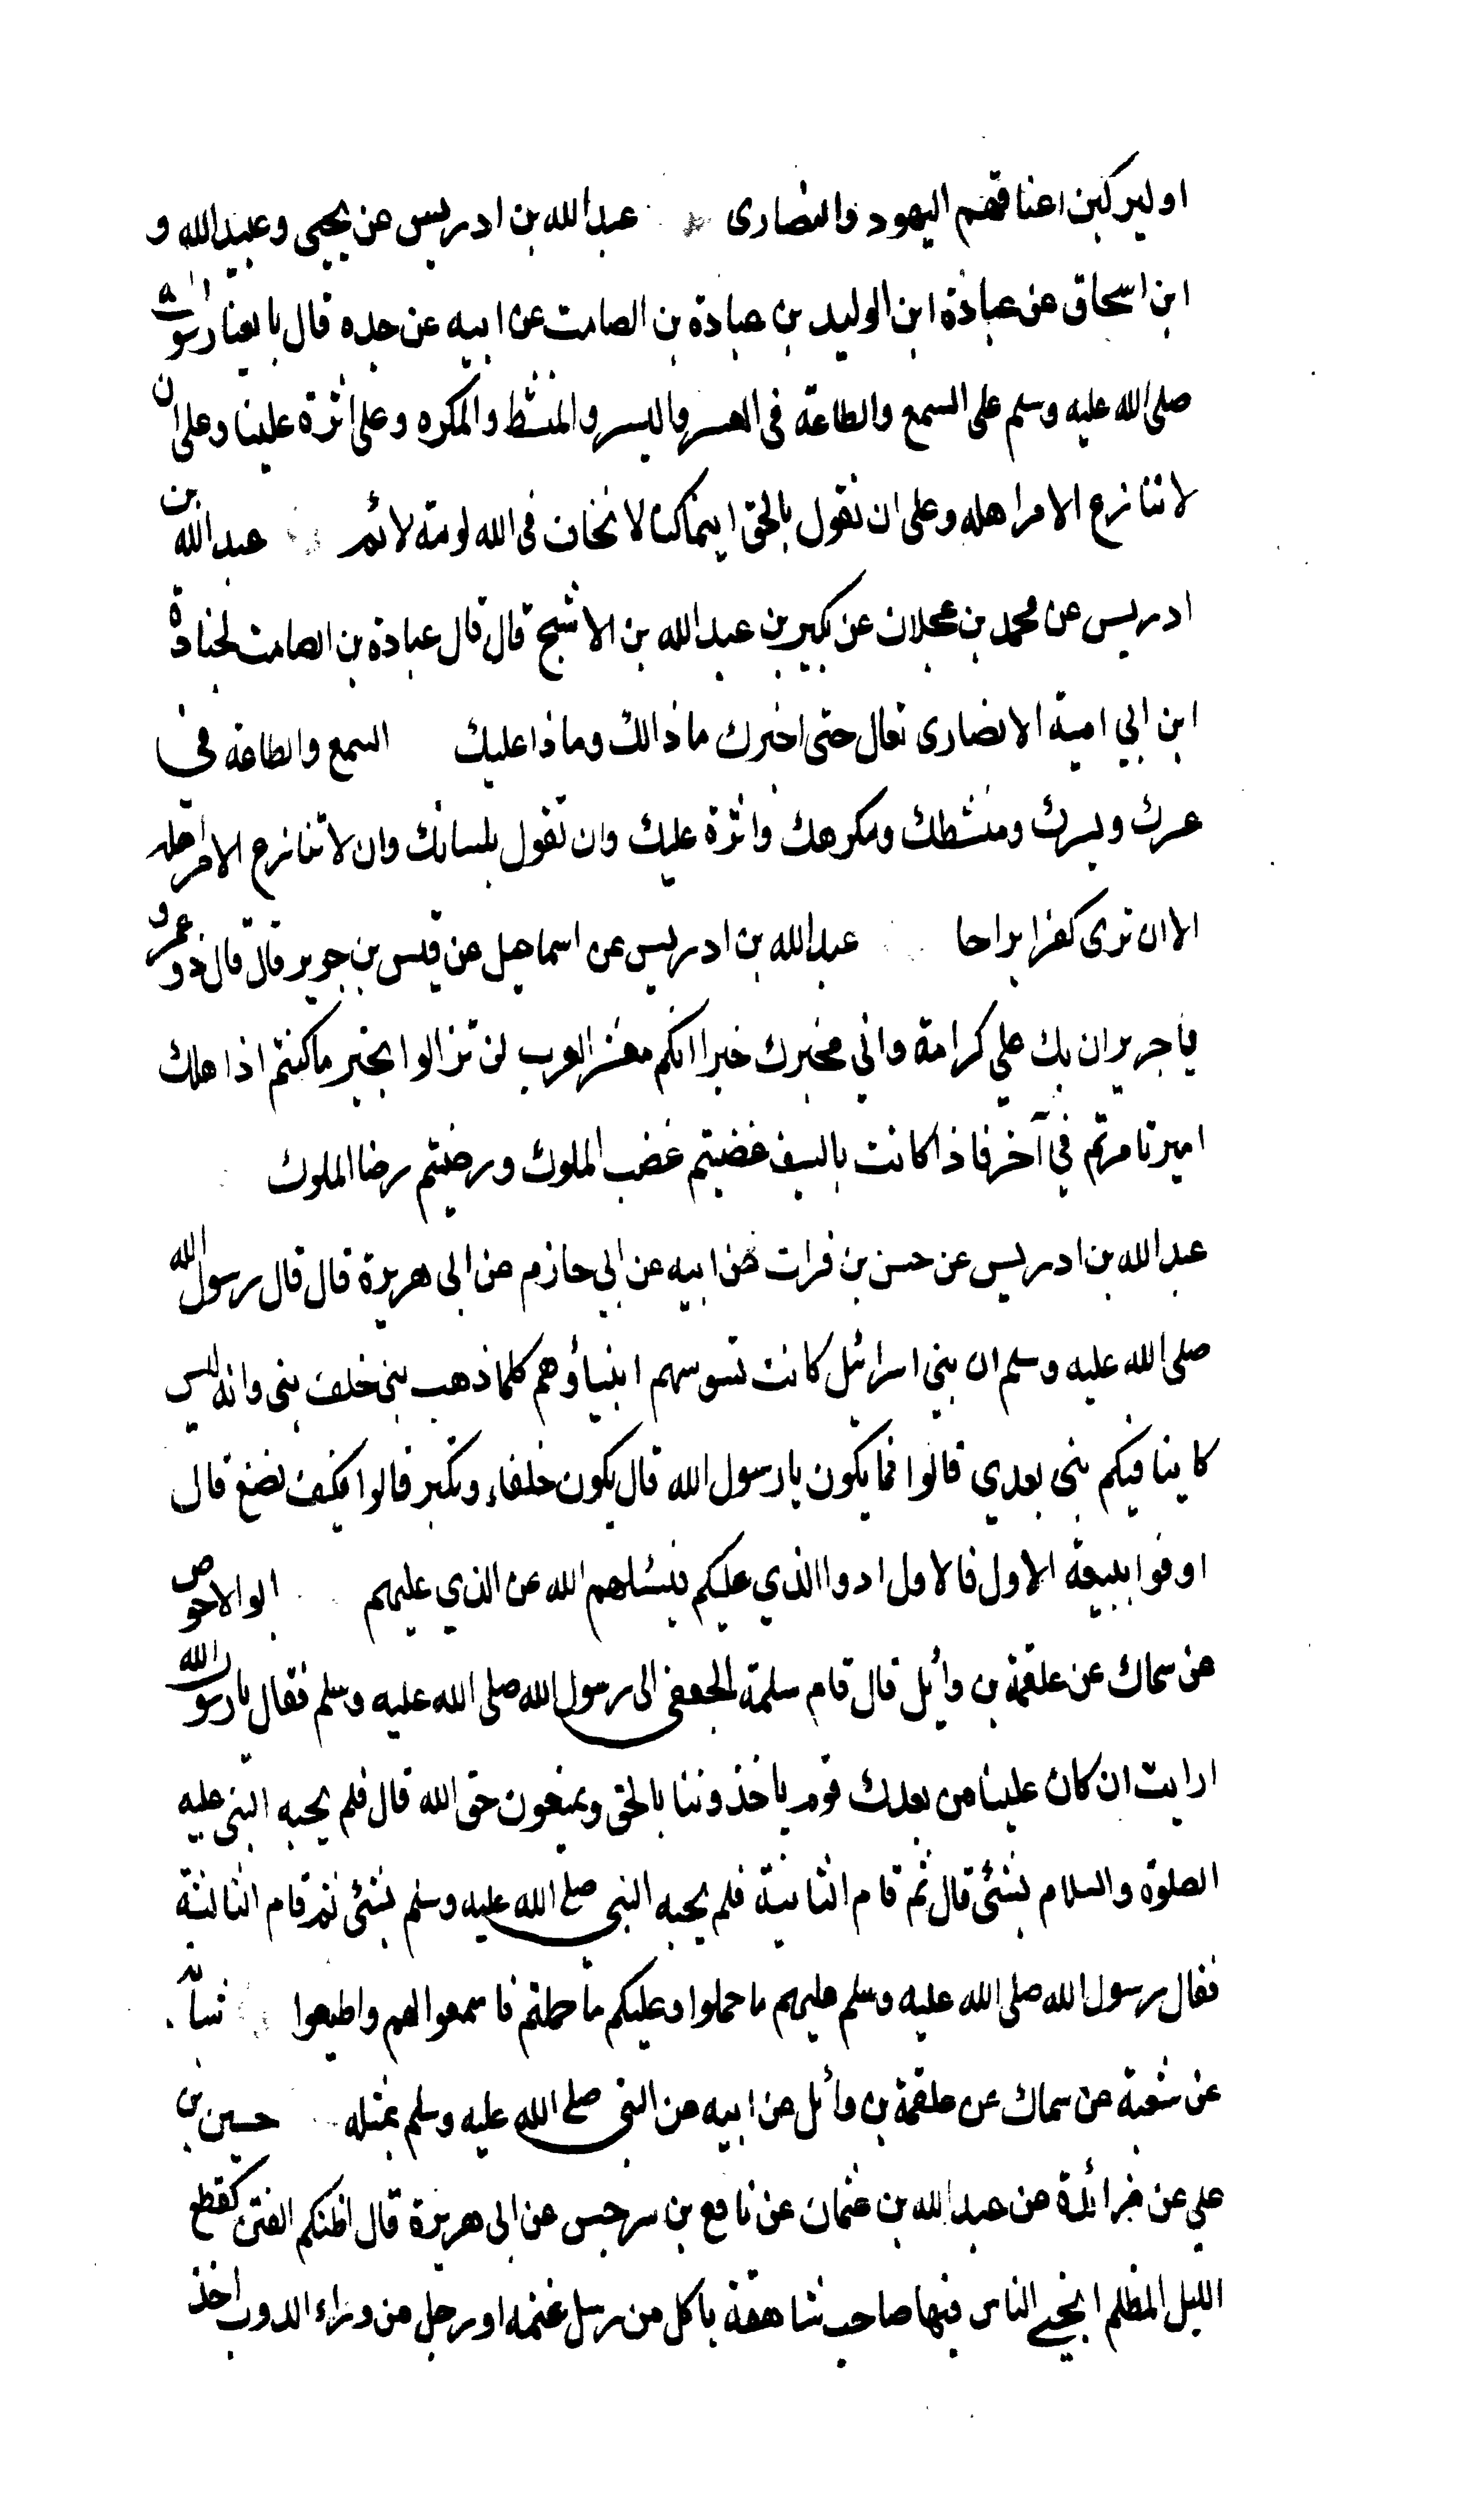 او ليركبن اعناقهم اليهود والنصارى عبد الله بن ادريس عن يحيى وعبيد الله و
ابن اسحاق عن عبادة ابن الوليد بن عبادة بن الصامت عن ابيه عن جده قال بايعنا رسول الله
صلى الله عليه وسلم على السمع والطاعة فى العسر واليسر والمنشط والمكره وعلى اثرة علينا وعلى ان
لا ننازع الامر اهله وعلى ان نقول بالحق اينما كنا لا نخاف فى الله لومة لائم عبد الله بن
ادريس عن محمد بن عجلان عن بكير بن عبد الله بن الاشج قال قال عبادة بن الصامت لجنادة
ابن ابي امية الانصارى تعال حتى اخبرك ماذا لك وماذا عليك السمع والطاعة في
عسرك ويسرك ومنشطك ومكرهك واثرة عليك وان تقول بلسانك وان لا تنازع الامر اهله
الا ان ترى كفرا براحا عبد الله بن ادريس عن اسماعيل عن قيس بن جرير قال قال ذو عمرو
يا جرير ان بك علي كرامة واني مخبرك خبرا انكم معشر العرب لن تزالوا بخير ما كنتم اذا هلك
امير تامرتم في آخر فاذا كانت بالسيف غضبتم غضب الملوك ورضيتم رضا الملوك
عبد الله بن ادريس عن حسن بن فرات عن ابيه عن ابي حازم عن ابى هريرة قال قال رسول الله
صلى الله عليه وسلم ان بني اسرائيل كانت تسوسهم انبياؤهم كلما ذهب نبى خلف نبى وانه ليس
كاينا فيكم نبى بعدي قالوا فما يكون يا رسول الله قال يكون خلفاء وتكثر قالوا فكيف نصنع قال
اوفوا ببيعة الاول فالاول ادوا الذي عليكم فيسئلهم الله عن الذي عليهم ابو الاحوص
عن سماك عن علقمة بن وائل قال قام سلمة الجعفى الى رسول الله صلى الله عليه وسلم فقال يا رسول الله
ارايت ان كان علينا من بعدك قوم ياخذوننا بالحق ويمنعون حق الله قال فلم يجبه النبى عليه
الصلوة والسلام بشئ قال ثم قام الثانية فلم يجبه النبى صلى الله عليه وسلم بشئ ثم قام الثالثة
فقال رسول الله صلى الله عليه وسلم عليهم ما حملوا وعليكم ما حملتم فاسمعوا لهم واطيعوا
عن شعبة عن سماك عن علقمة بن وائل عن ابيه عن النبى صلى الله عليه وسلم بمثله حسين بن
علي عن زائدة عن عبد الله بن عثمان عن نافع بن سرجس عن ابى هريرة قال اظلتكم الفتن كقطع
الليل المظلم انجى الناس فيها صاحب شاهقة ياكل من رسل غنمه او رجل من وراء الدوب اخذ